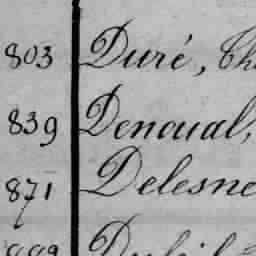 803 Duré,
839 Denoual,
871 Delesne